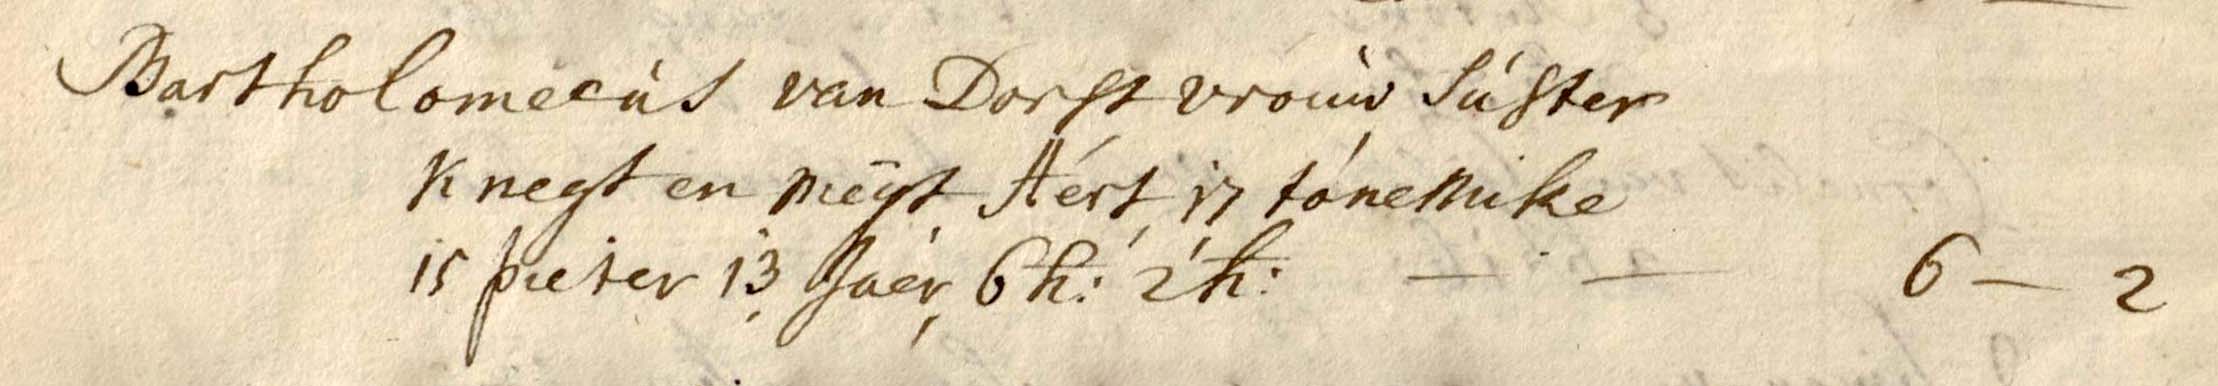 Bartholomeeus van Dorst vrouw suster
Knegt en megt Aert 17 tonemike
15 pieter 13 Jaer 6 h: 2 h: — — 6 — 2